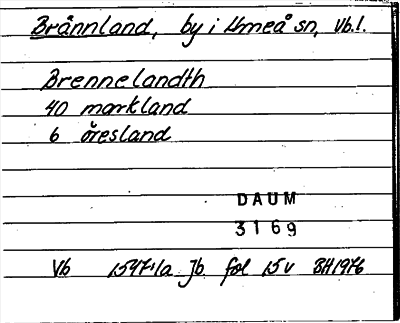 Brännland, by i Umeå sn, Vb.l.
Brennelandth
40 markland
6 öresland
DAUM
3169
Vb 1547:1a Jb fol 15v BH1976